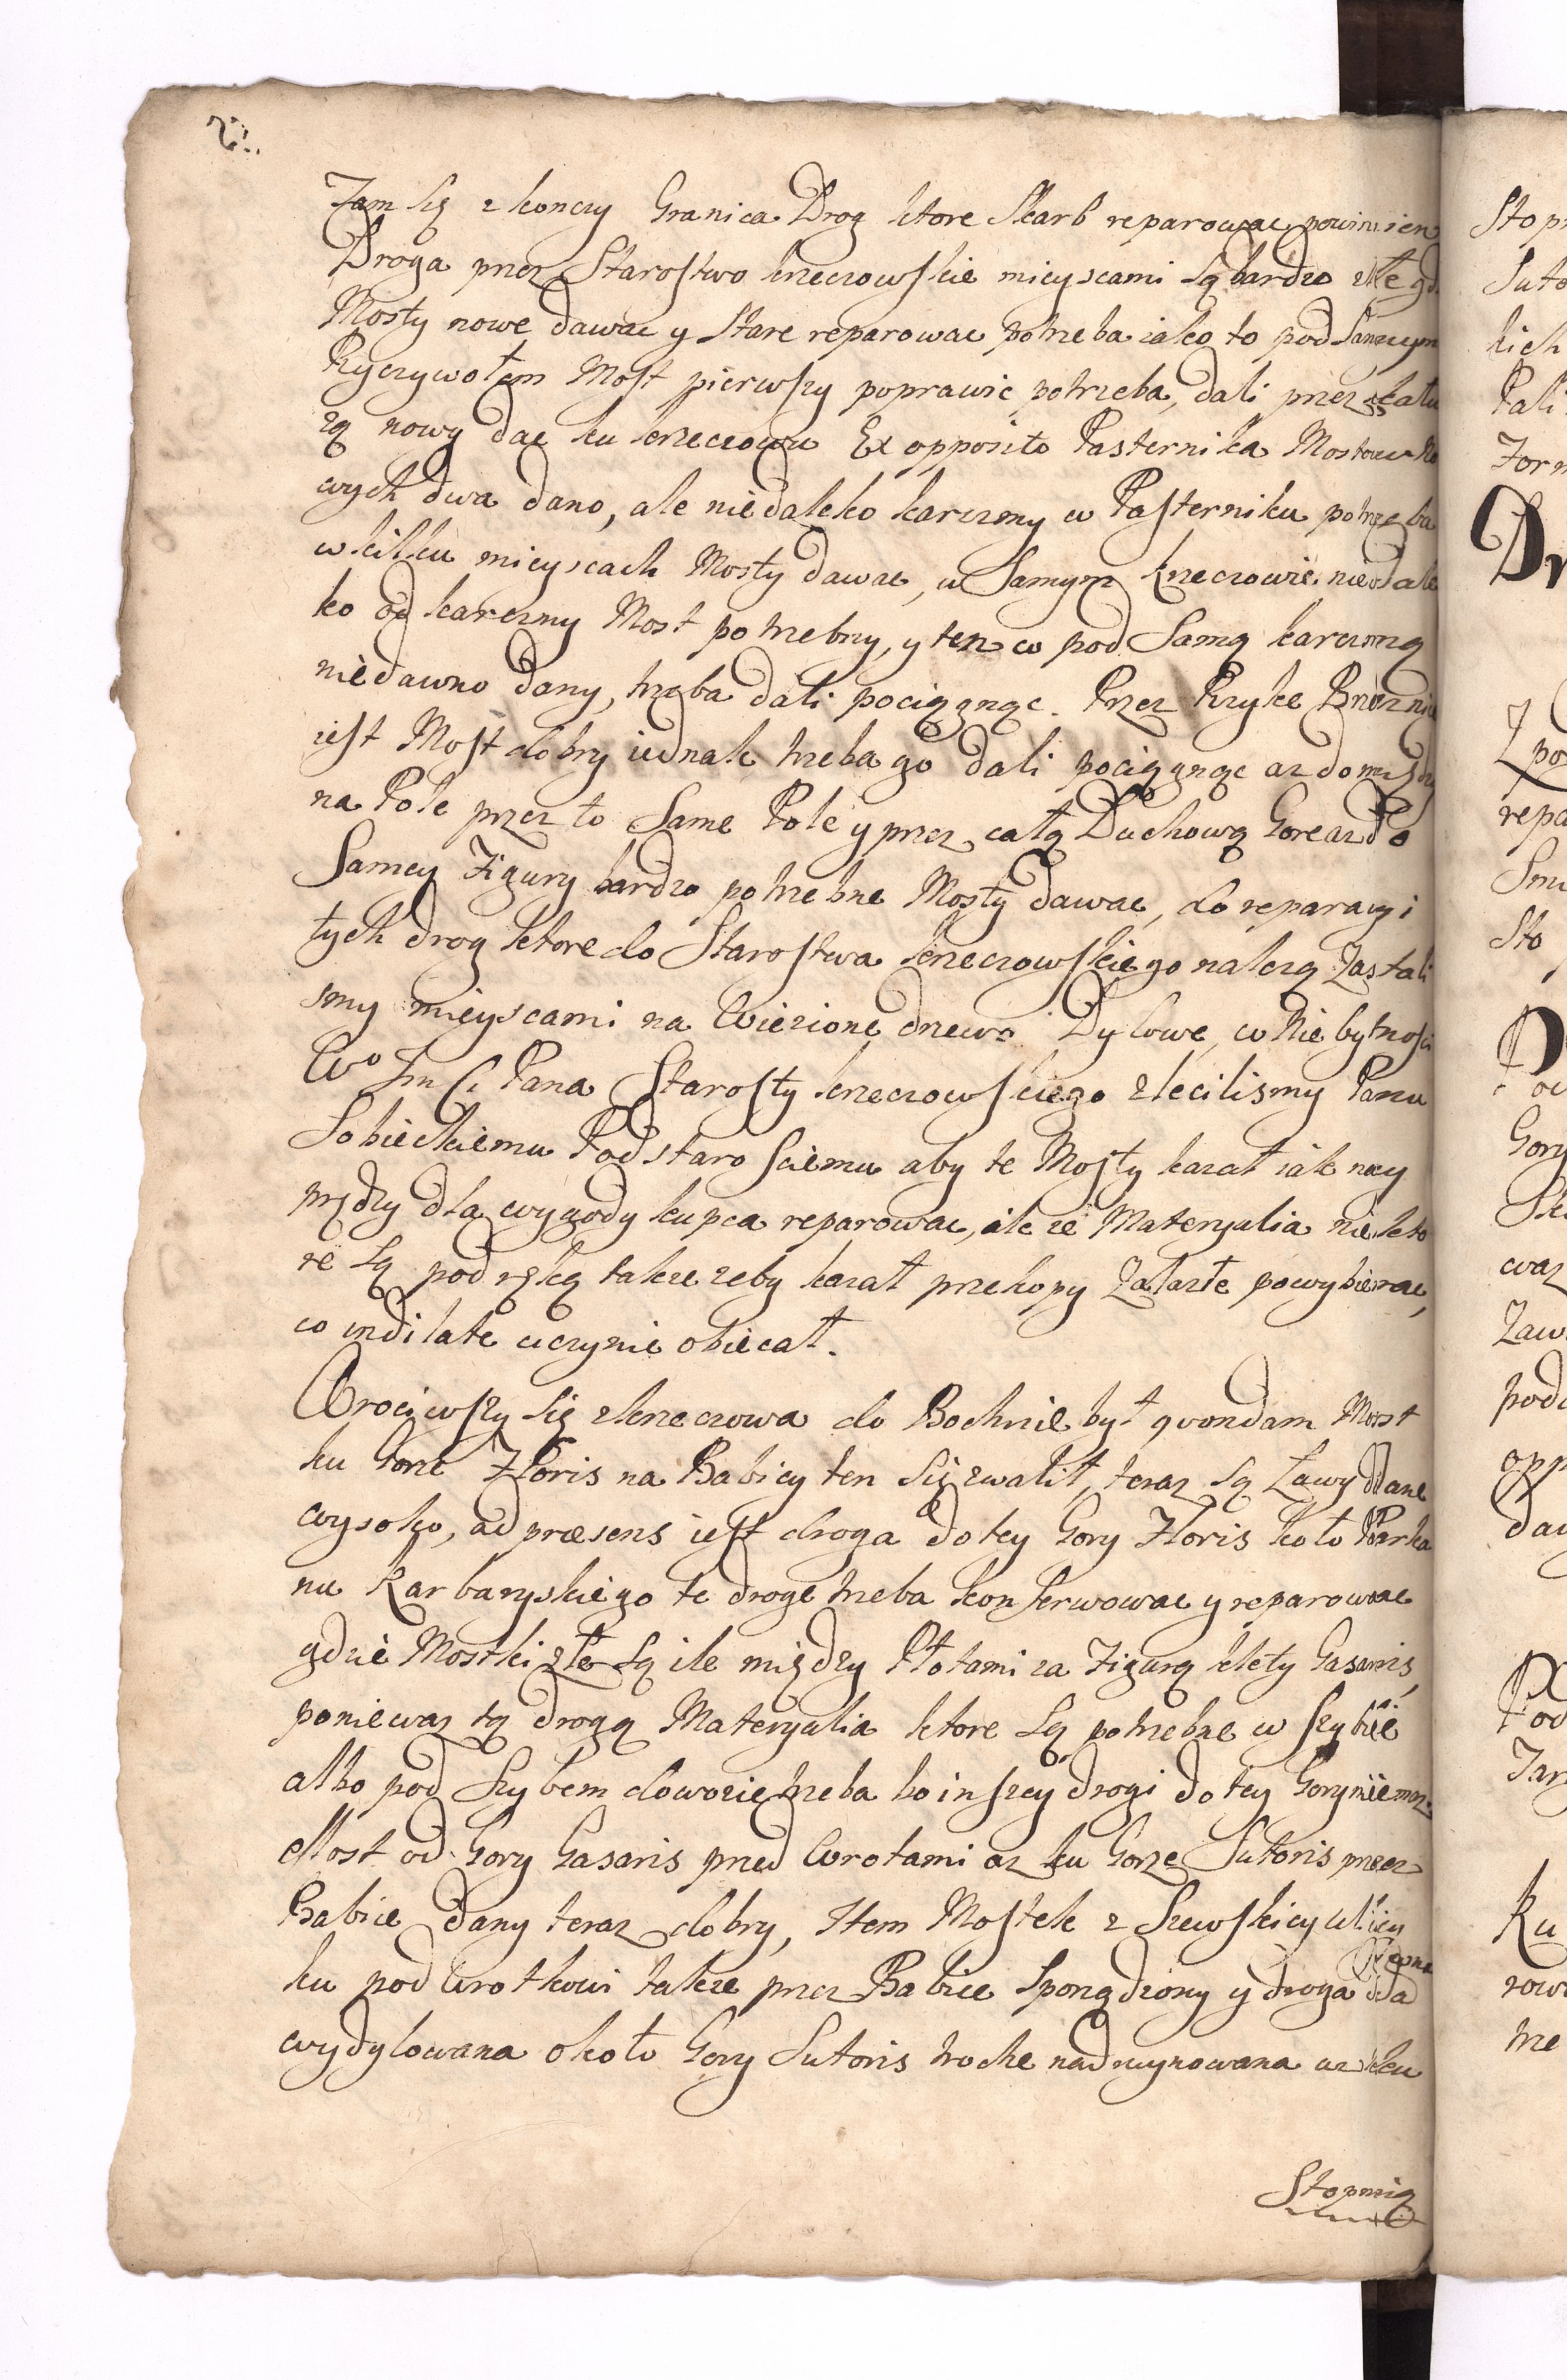 Tam się zkonczy Granica Drog ktore Skarb reparowac powinien
Droga przez Starostwo krzeczowskie mieyscami są bardzo złe gd
Mosty nowe dawac y Stare reparowac potrzeba iako to pod Samym
Przyczywołem Most pierwszy poprawic potrzeba, dali przez kału
zą nowy dac ku krzeczowu Ex opposito Pasternika Mostow no
wych dwa dano, ale niedaleko karczmy w Pasterniku potrzeba
w kilku mieyscach Mosty dawac, w Samym krzeczowie niedale
ko od karczmy Most potrzebny, y ten co pod Samą karczmą
niedawno dany, trzeba dali pociągnąc. Przez Rzyke Brzeznic
iest Most dobry iednak trzeba go dali pociągnąc az do
na Pole przez to Same Pole y przez całą Duchową Gore az do
Samey Figury bardzo potrzebne Mosty dawac, do reparacyi
tych drog ktore do Starostwa krzeczowskiego nalezą Zastali
smy mieyscami na Wiezione drzewo Dylowe, w Niebytnosci
Wo Jm Ci Pana Starosty krzeczowskiego zlecilismy Panu
Sobieckiemu Podstarosciemu aby te Mosty kazał iak nay
prędzy dla wygody kupca reparowac, ile ze Materyalia niekto
re są pod ręką takze zeby kazał przekopy Zalazłe powybierac,
co indilate uczynic obiecał.
Wrociwszy się zkrzeczowa do Bochnie był quondam Most
ku Gorze Floris na Babicy ten się zwalił, teraz są Ławy dane
wysoko, ad præsens iest droga do tey Gory Floris koło Parka
nu Karbaryskiego te droge trzeba konserwowac y reparowac
gdzie Mostki złe są ile między Płotami za Figurą klety Gasaris,
poniewaz tą drogą Materyalia ktore są potrzebne w szybie
albo pod Szybem dowozic trzeba bo inszey drogi do tey Gory niemaz
Most od Gory Gasaris przed Wrotami az ku Gorze Sutoris przez
Babice dany teraz dobry, Item Mostek z Szewskiey ulicy
ku pod Wrotkowi takze przez Babice Sporządzony y droga
wydylowana około Gory Sutoris troche nadruynowana az ku
Stopnią